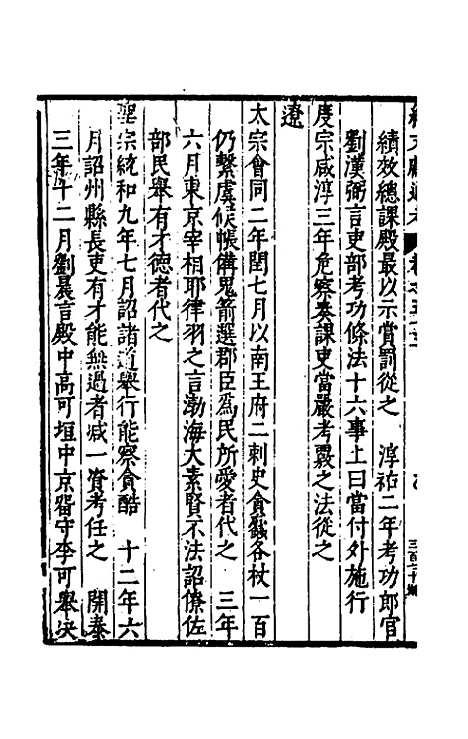 績效總課殿最以示賞罰從之　淳祐二年考功郎官
劉漢弼言吏部考功條法十六事上曰當付外施行
度宗咸淳三年危察奏課吏當嚴考覈之法從之
遼
太宗會同二年閏七月以南王府二刺史貪𧎢各杖一百
仍繫虞候帳備鬼箭選郡臣為民所愛者代之　三年
六月東京宰相耶律羽之言渤海大素賢不法詔僚佐
部民舉有才德者代之
聖宗統和九年七月詔諸道舉行能察貪酷　十二年六
月詔州縣長吏有才能無過者减一資考任之　開泰
三年十二月劉晨言殿中高可垣中京留守李可舉决